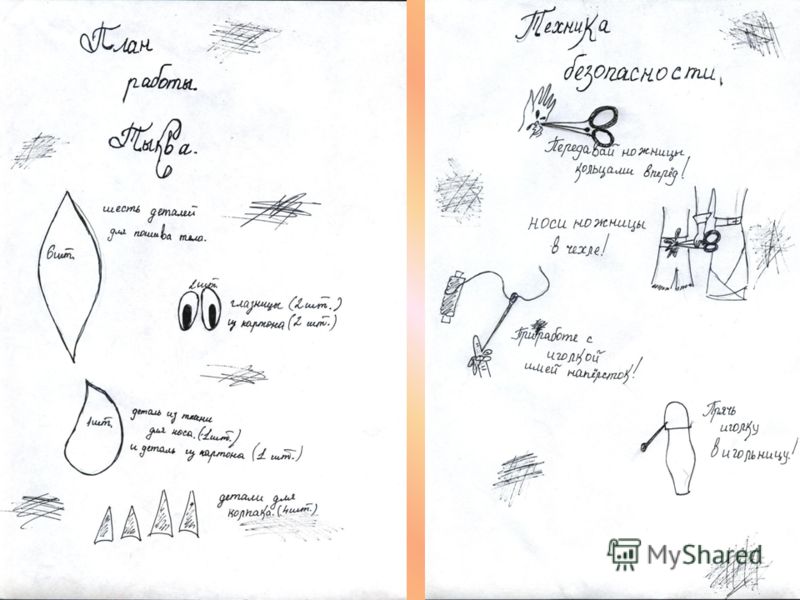 План
работы.
Тыква.
шесть деталей
для пошива тело.
6 шт.
2 шт.
глазницы (2 шт.)
из картона (2 шт.)
1 шт.
деталь из ткани
для носа. (-1 шт.)
и деталь из картона (1 шт.)
детали для
колпака. (4 шт.)
Техника
безопасности.
Передавай ножницы
кольцами вперёд!
носи ножницы
в чехле!
При работе с
иголкой
имей напёрсток!
Прячь
иголку
в игольницу!
MyShared